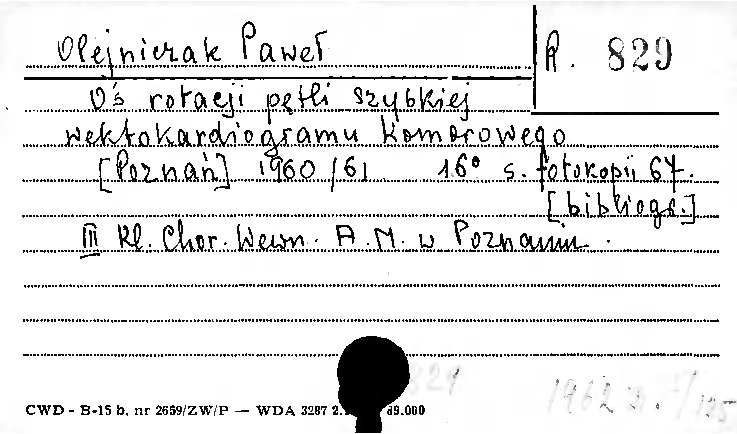 Olejniczak Paweł
R. 829
Oś rotacji pętli szybkiej
wektokardiogramu komorowego
[Poznań] 1960/61 16° s. fotokopii 67.
[bibliogr.]
III Kl. Chor. Wewn. A.M. w Poznaniu.
829
1962 D. /125
CWD - B-15 b, nr 2659/ZW/P — WDA 3287 2. 39.000